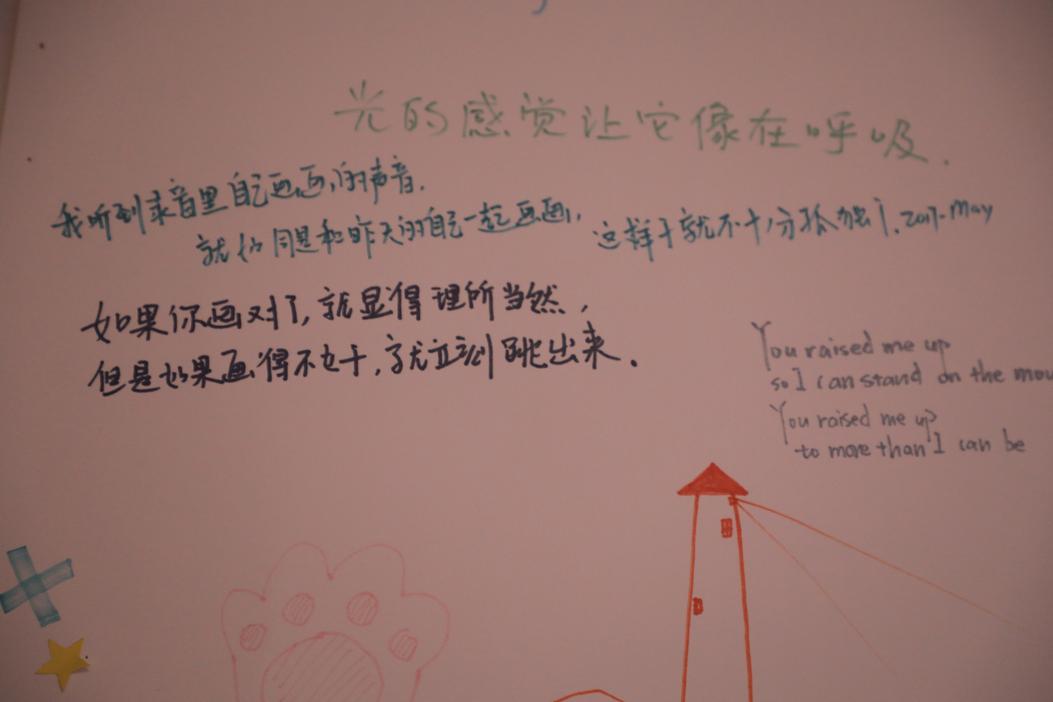 光的感觉让它像在呼吸.
我听到录音里自己画画的声音.
就如同是和昨天的自己一起画画, 这样子就不十分孤独了. 2017. May
如果你画对了, 就显得理所当然,
但是如果画得不对, 就立刻跳出来.
You raised me up
so I can stand on the mou
You raised me up
to more than I can be